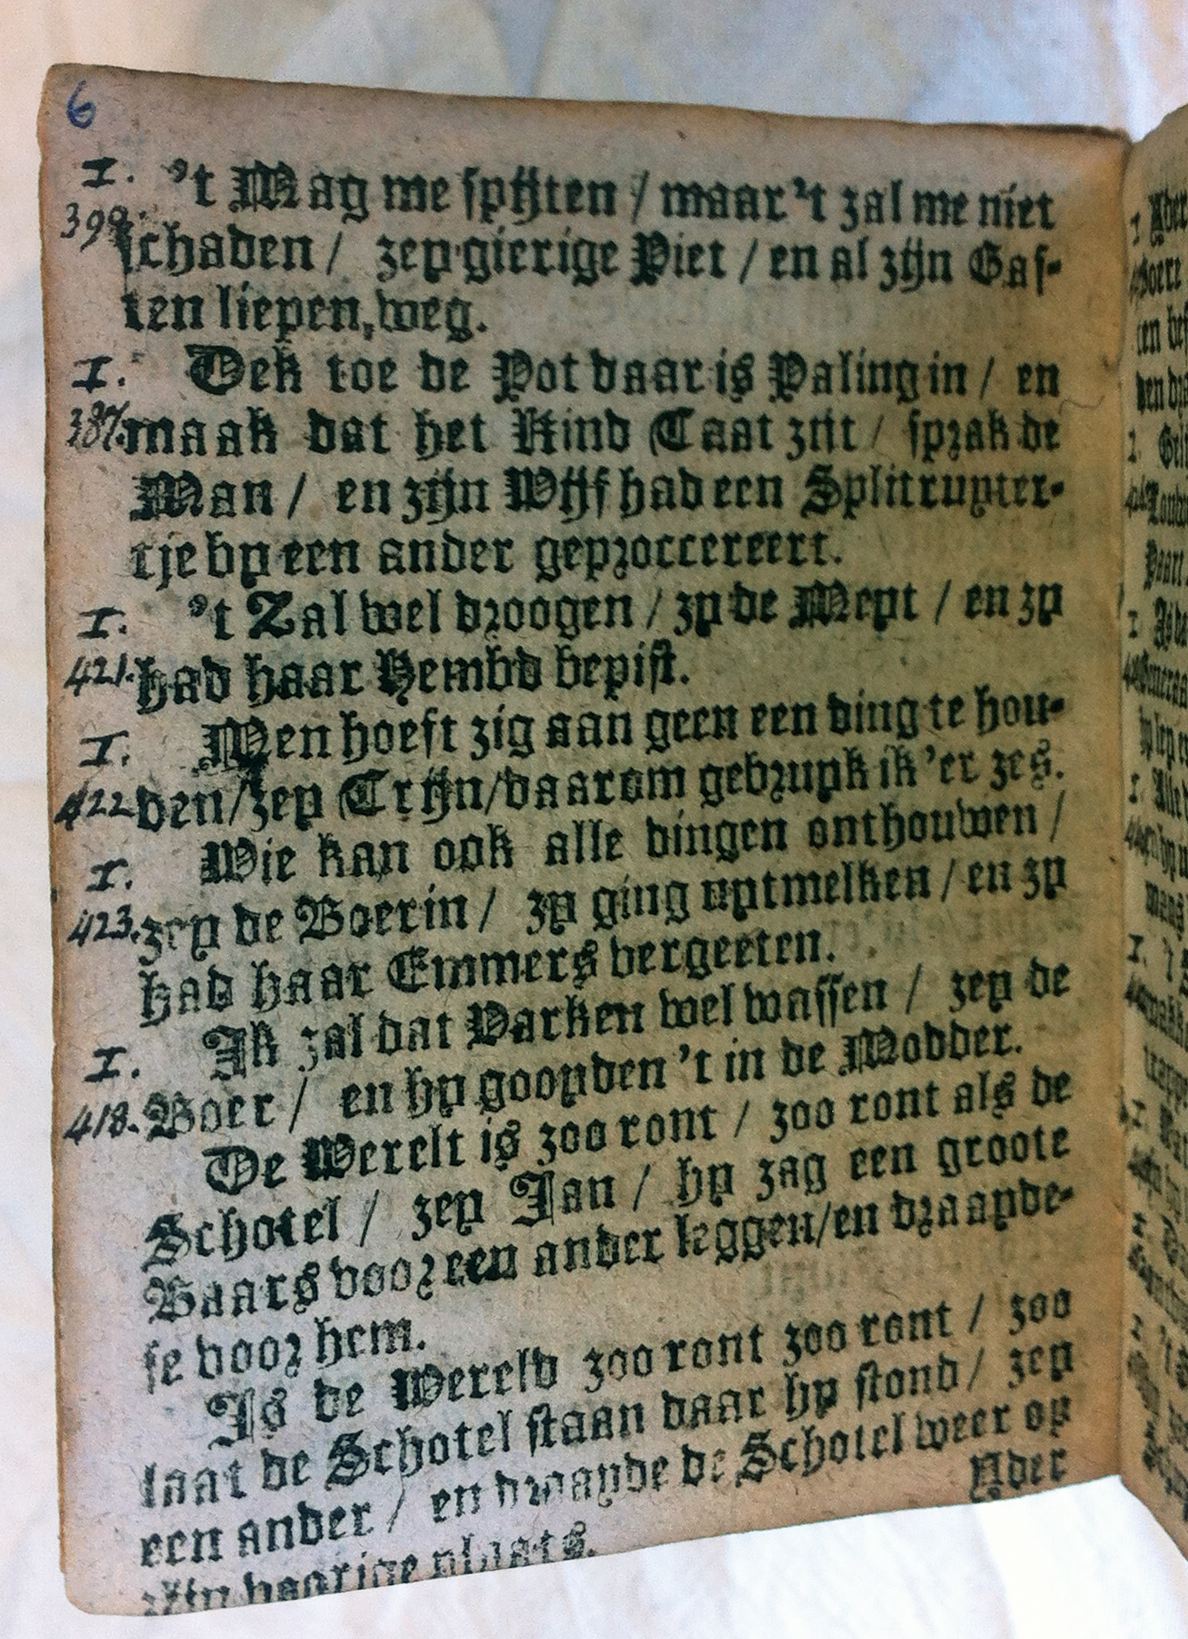 6
1. 't Mag me spijten / maar 't zal me niet
399
schaden / zey gierige Piet / en al zijn Gas-
ten liepen, weg.
1. Dek toe de Pot daar is Paling in / en
387. maak dat het Kind Caat ziit / sprak de
Man / en zijn Wijf had een Splitruyter-
tje by een ander geproccereert.
1. 't Zal wel droogen / zy de Meyt / en zy
421. had haar Hembd bepist.
1. Men hoeft zig aan geen een ding te hou-
422 den / zey Crijn / daarom gebruyk ik 'er zes.
1. Wie kan ook alle dingen onthouwen /
423. zey de Boerin / zy ging uytmelken / en zy
had haar Emmers vergeeten.
1. Ik zal dat Varken wel wassen / zey de
418. Boer / en hy gooyden 't in de Modder.
De Werelt is zoo ront / zoo ront als de
Schotel / zey Jan / hy zag een groote
Baars voor een ander leggen / en draayde-
se voor hem.
Is de Wereld zoo ront zoo ront / zoo
laat de Schotel staan daar hy stond / zey
een ander / en draayde de Schotel weer op
zijn voorige plaats.
Yder